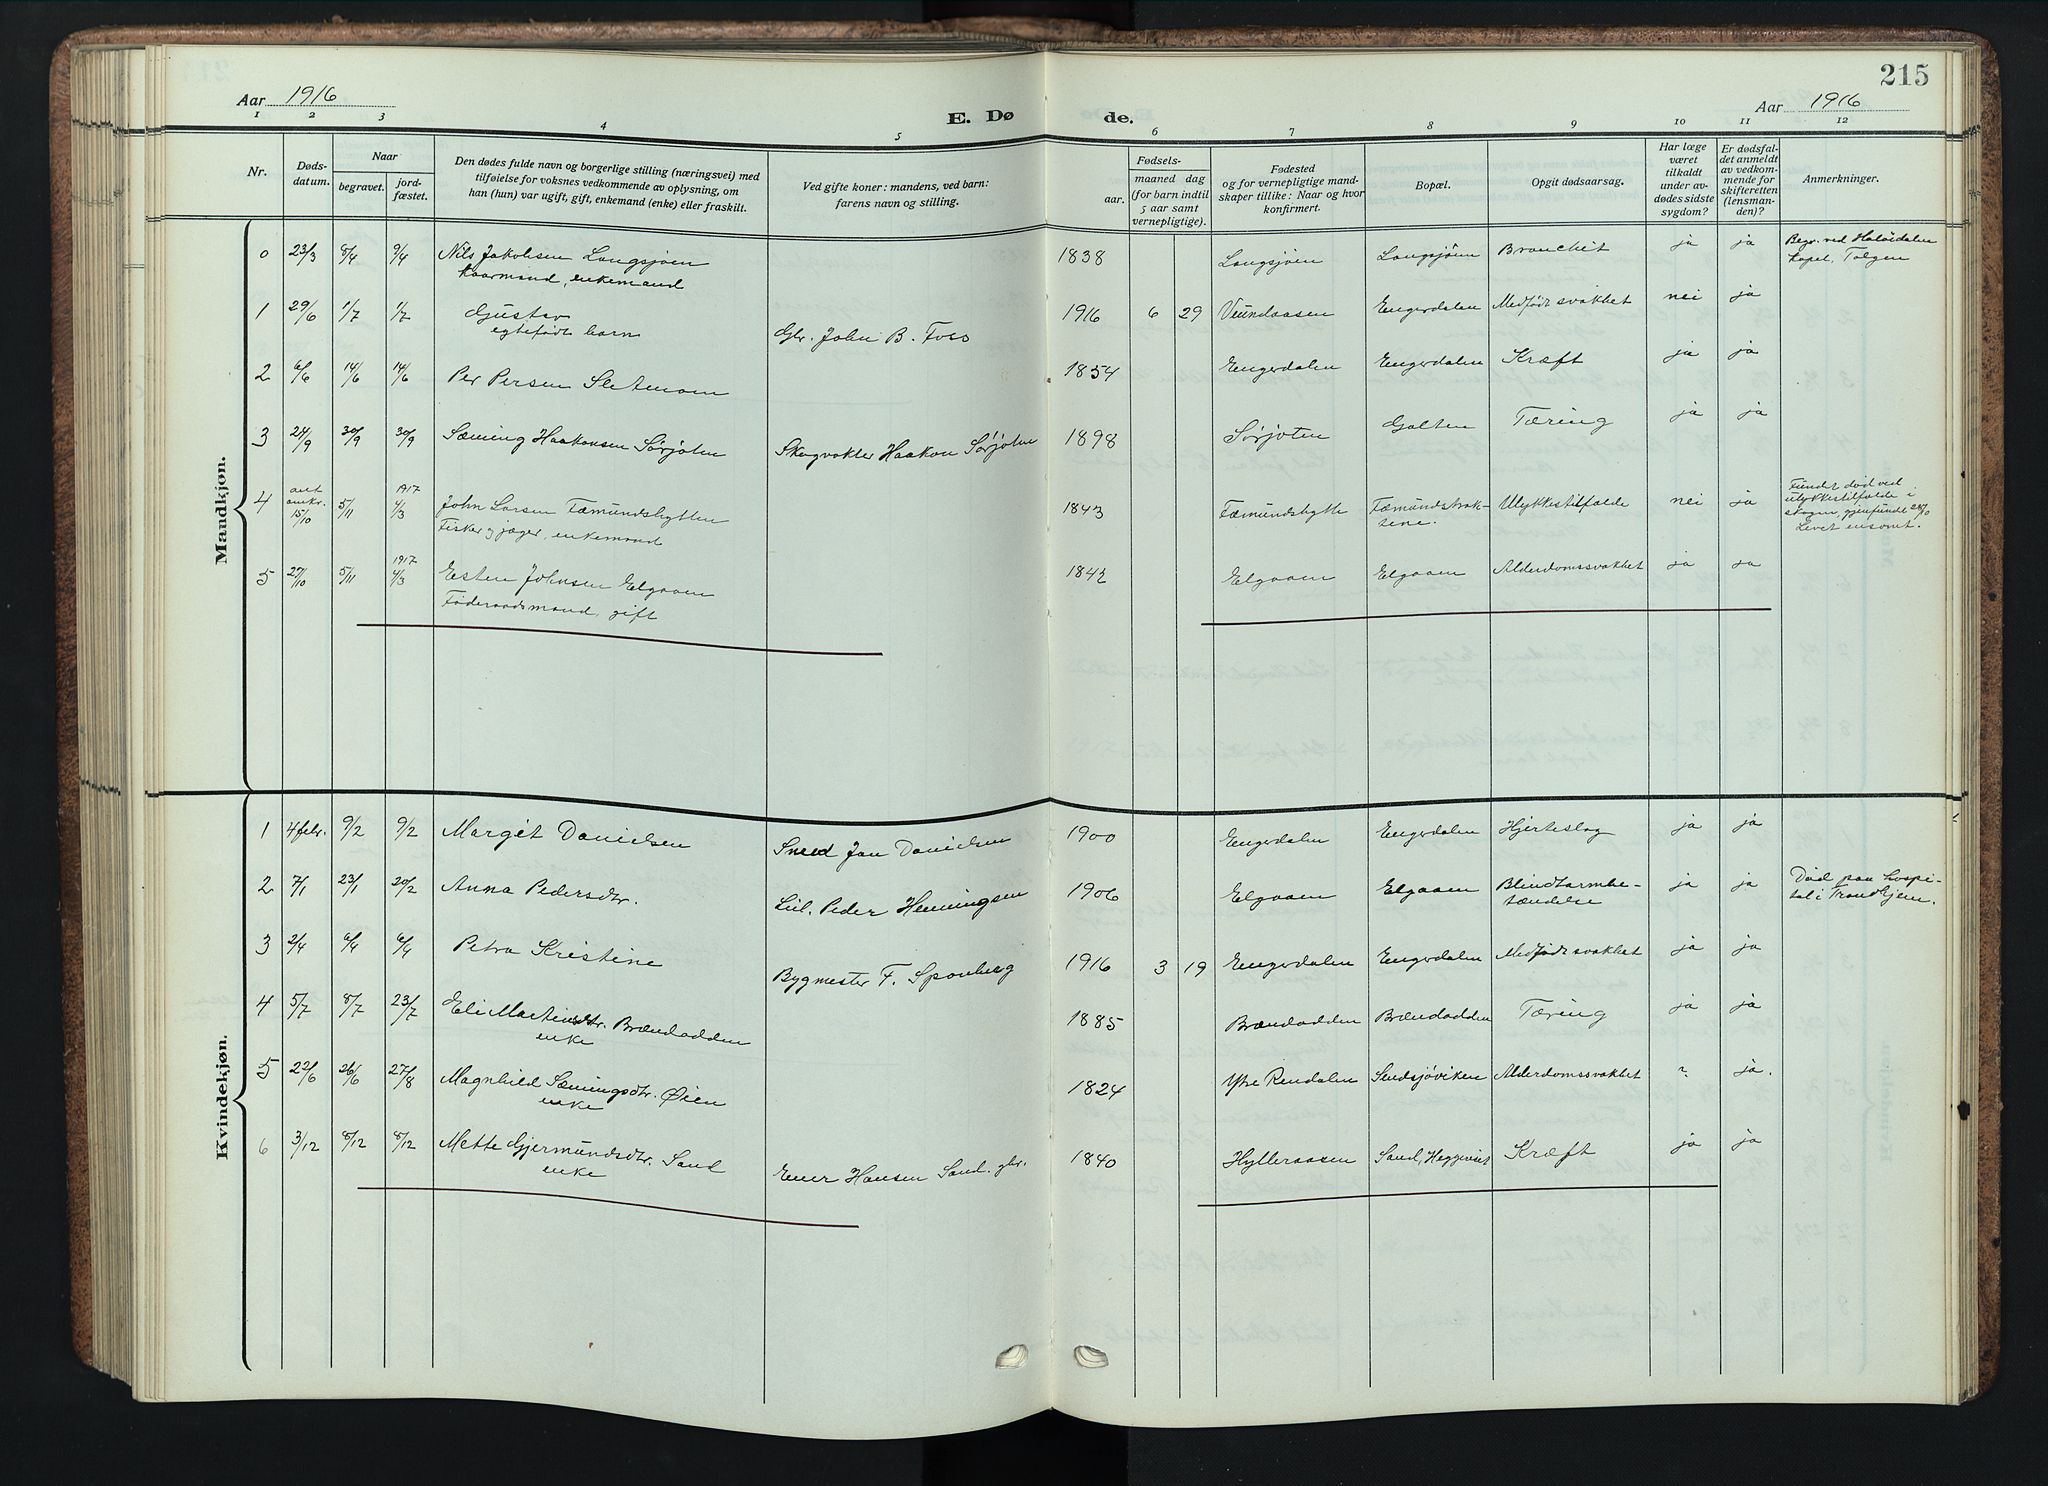 215
Aar 1916
E. Dø
de.
Aar 1916
1 2 3 4 5 6 7 8 9 10 11 12
Nr.
Døds-
datum.
Naar
begravet.
jord-
fæstet.
Den dødes fulde navn og borgerlige stilling (næringsvei) med
tilføielse for voksnes vedkommende av oplysning, om
han (hun) var ugift, gift, enkemand (enke) eller fraskilt.
Ved gifte koner: mandens, ved barn:
farens navn og stilling.
Fødsels-
aar.
maaned dag
(for barn indtil
5 aar samt
vernepligtige).
Fødested
og for vernepligtige mand-
skaper tillike: Naar og hvor
konfirmert.
Bopæl.
Opgit dødsaarsag.
Har læge
været
tilkaldt
under av-
dødes sidste
sygdom?
Er dødsfal-
det anmeldt
av vedkom-
mende for
skifteretten
(lensman-
den)?
Anmerkninger.
Mandkjøn.
0 23/3 8/4 9/4 Nils Jakobsen Langsjøen 1838 Langsjøen Langsjøen Bronchit ja ja Begr. ved Holøidalen
kaarmand, enkemand kapel, Tolgen
1 29/6 1/7 1/7 Gustav 1916 6 29 Veundaasen Engerdalen Medfødt svakhet nei ja
egtefødt barn Gbr. John B. Foss
2 6/6 14/6 14/6 Per Persen Sletmoen 1854 Engerdalen Engerdalen Kræft ja ja
3 24/9 30/9 30/9 Sæming Haakonsen Sørjoten Skogvokter Haakon Sørjoten 1898 Sørjoten Galten Tæring ja ja
4 ant. omkr. 15/10 5/11 1917 4/3 John Larsen Fæmundshytten 1843 Fæmundshytte Fæmundstrak- Ulykkestilfælde nei ja Fundet død ved
Fisker og jæger, enkemand sene. ulykkestilfælde i
skogen, gjenfundt 28/10
Levet ensomt.
5 27/10 5/11 1917 4/3 Esten Johnsen Elgaaen 1842 Elgaaen Elgaaen Alderdomssvakhet ja ja
Føderaadsmand, gift
Kvindekjøn.
1 4 febr. 9/2 9/2 Margit Danielsen Smed Jan Danielsen 1900 Engerdalen Engerdalen Hjerteslag ja ja
2 7/1 23/1 20/2 Anna Pedersdtr. Peder Henningsen 1906 Elgaaen Elgaaen Blindtarmbe- ja ja Død paa hospi-
tændelse tal i Trondhjem.
3 2/4 6/4 6/4 Petra Kristine Bygmester F. Sponberg 1916 3 19 Engerdalen Engerdalen Medfødt svakhet ja ja
4 5/7 8/7 23/7 Eli Martinsdtr. Brændadden 1885 Brændadden Brændadden Tæring ja ja
enke
5 22/6 26/6 27/8 Magnhild Sæmingsdtr. Øien 1824 Ytre Rendalen Sendsjøviken Alderdomssvakhet ? ja.
enke
6 3/12 8/12 8/12 Mette Gjermundsdtr. Sand Ener Hansen Sand. gbr. 1840 Hylleraasen Sand, Heggeriset Kræft ja ja
enke